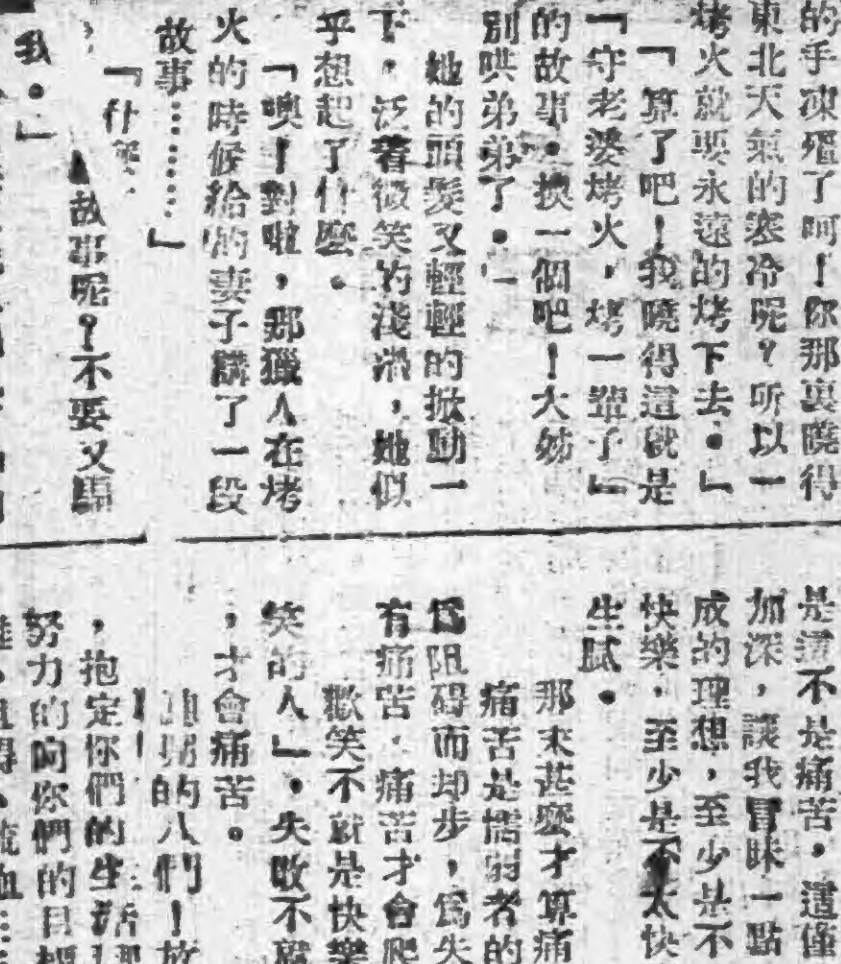 的手凍殭了呵！你那裏曉得
東北天氣的寒冷呢？所以一
烤火就要永遠的烤下去。」
「算了吧！我曉得這就是
「守老婆烤火，烤一輩子」
的故事。換一個吧！大姊
別哄弟弟了。」
她的頭髮又輕輕的掀動一
下。泛着微笑的淺渦，她似
乎想起了什麼。
「噢！對啦，那獵人在烤
火的時候給的妻子講了一段
故事………」
「什麼，
故事呢？不要又騙
我。」
是還不是痛苦。這僅
加深，讓我冒昧一點
成的理想，至少是不
快樂，至少是不太快
生膩。
那末甚麼才算痛
痛苦是懦弱者的
爲阻碍而却步，爲失
有痛苦，痛苦才會爬
歡笑不就是快樂
笑的人」。失敗不
，才會痛苦。
的人們！放
，抱定你們的生活
努力的向你們的目標